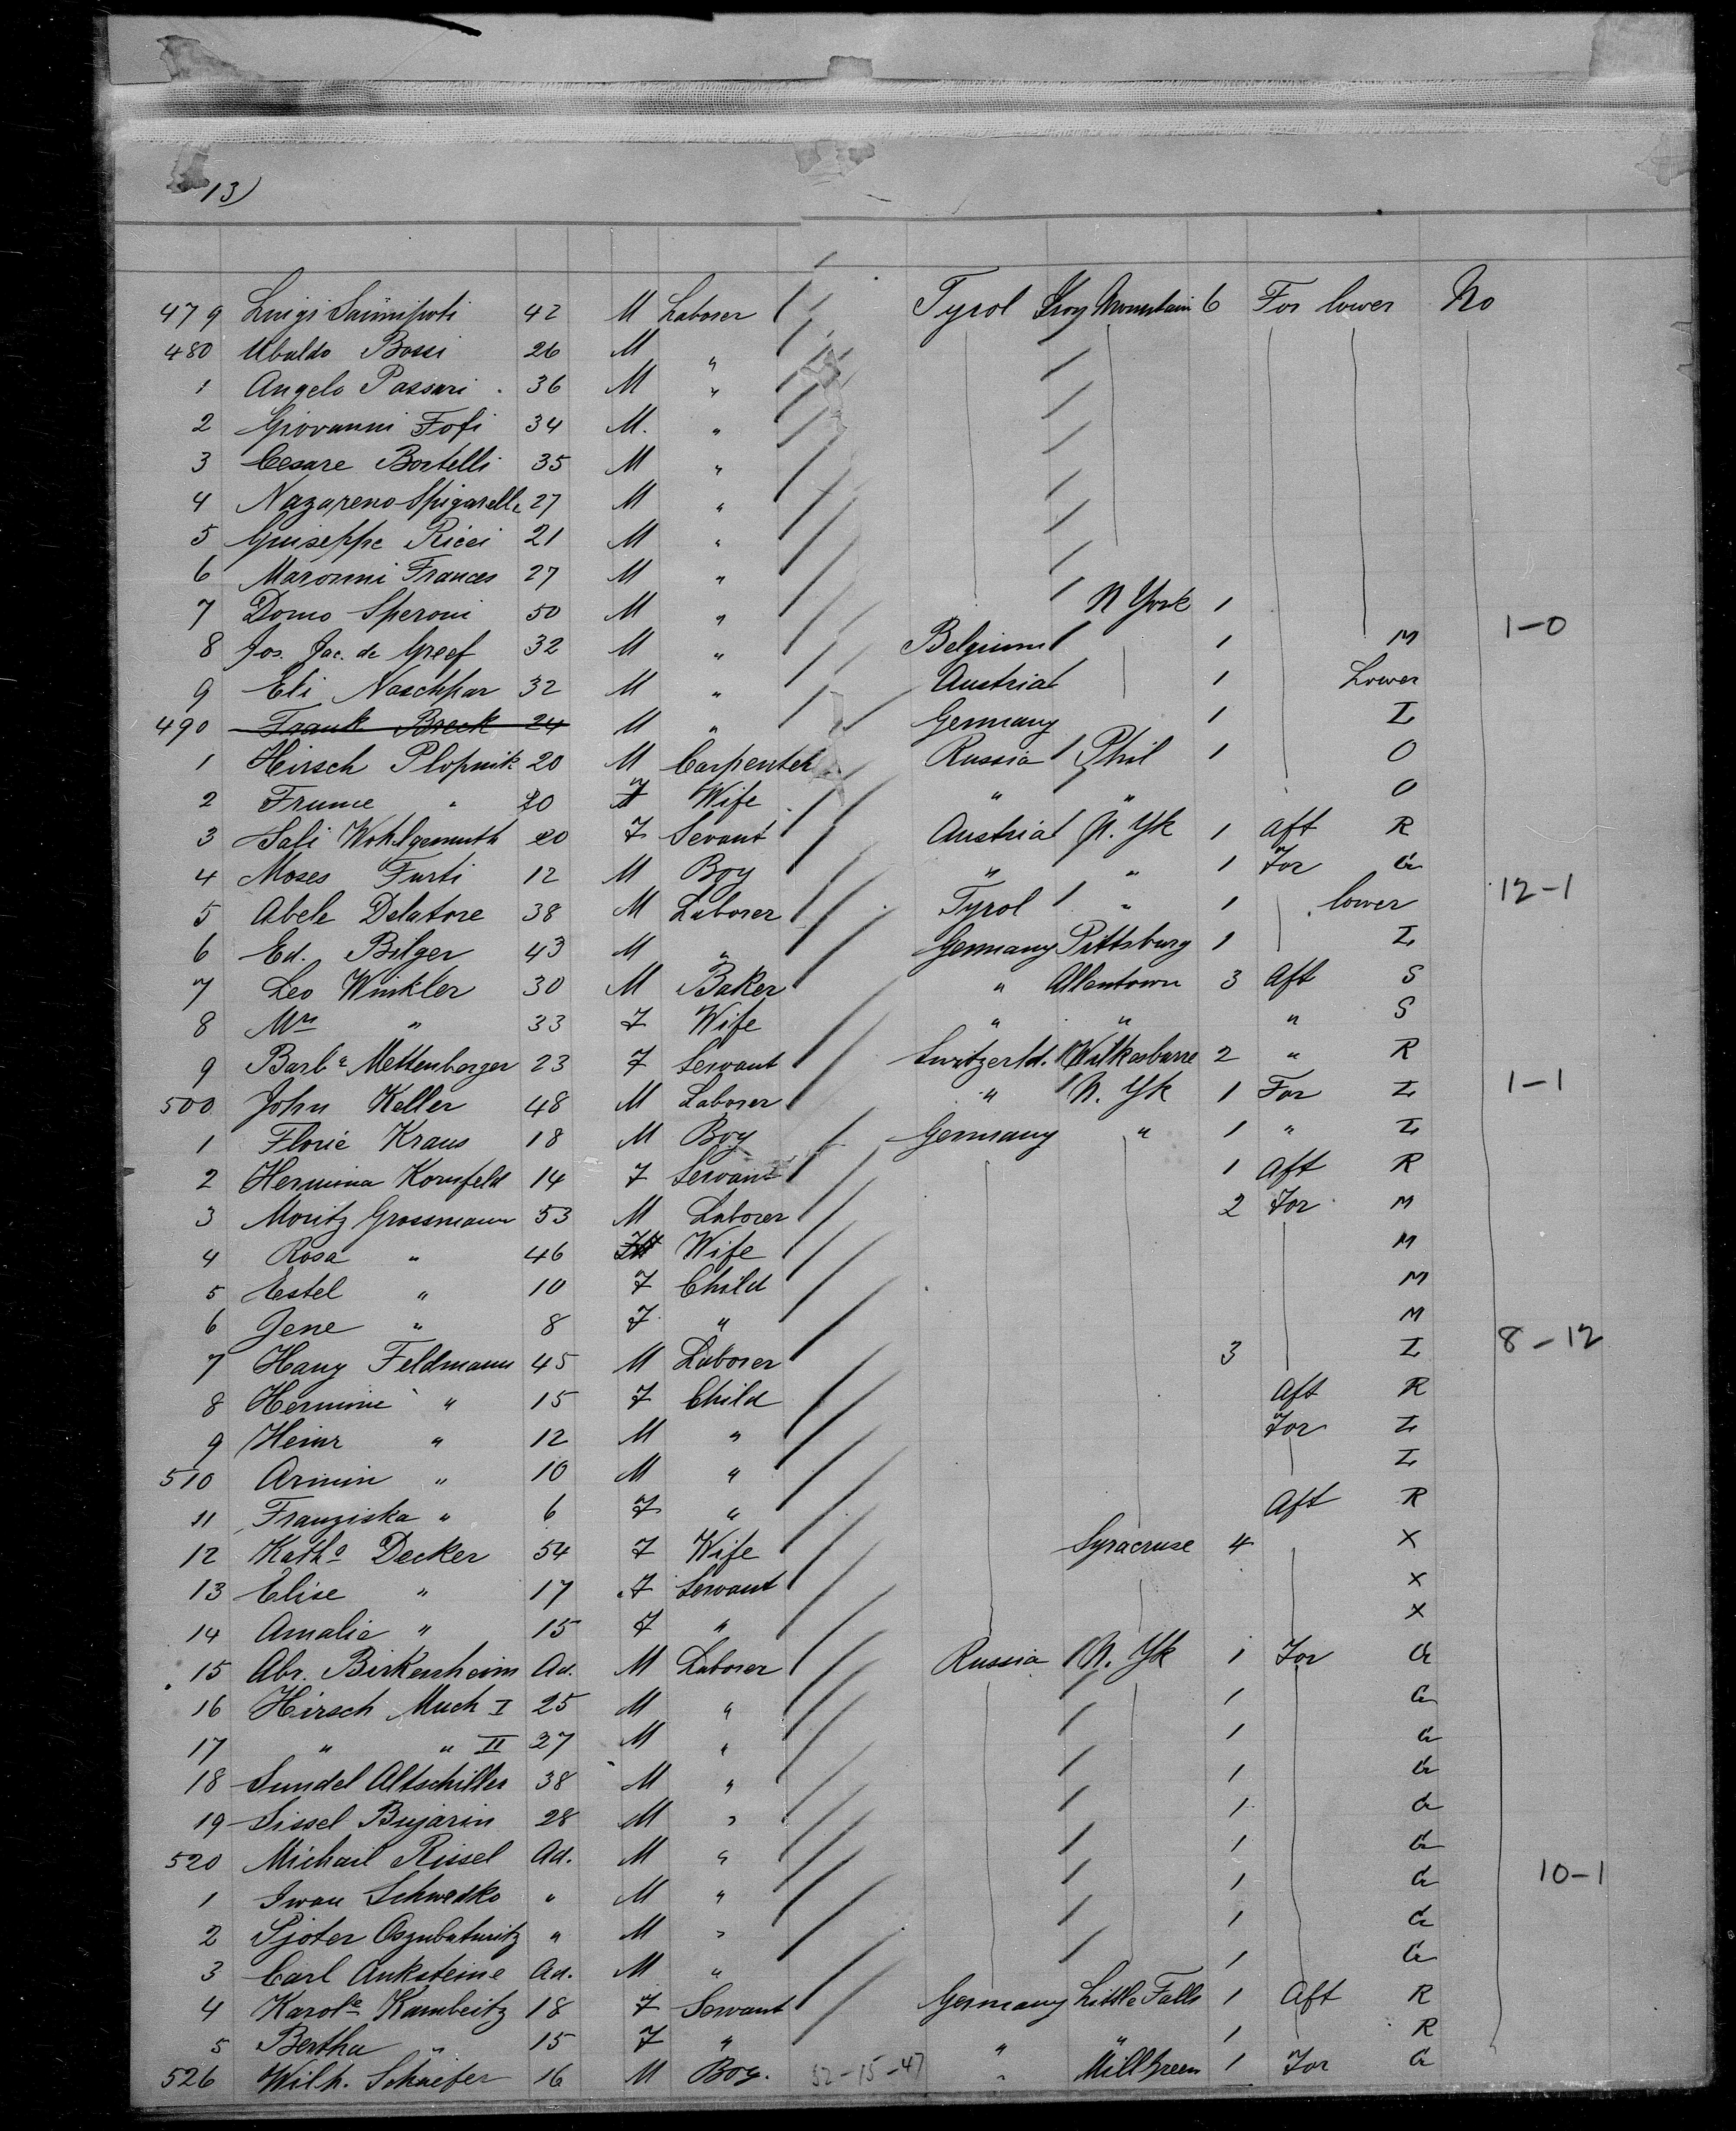 13)
479 Luigi 42 M Laborer Tyrol Iron Mountain 6 For lower No
480 Ubaldo Bossi 26 M "
1 Angelo Passari 36 M "
2 Giovanni Fofi 34 M. "
3 Cesare Bortelli 35 M "
4 Nazareno Spigarelli 27 M "
5 Guiseppe Ricci 21 M "
6 Maronni Frances 27 M "
7 Domo Speroni 50 M " N York 1
8 Jos. Jac. de Greef 32 M " Belgium 1 M 1-0
9 Eli Naschpar 32 M " Austria 1 Lower
490 Frank Breck 24 M " Germany 1 I
1 Hirsch Plopnik 20 M Carpenter Russia Phil 1 O
2 Frume " 20 Wife " " O
3 Sali Wohlgemuth 20 F Sevant Austria N. Yk 1 Aft R
4 Moses Furti 12 M Boy " " 1 For G
5 Abele Delatore 38 M Laborer Tyrol " 1 lower 12-1
6 Ed. Bilger 43 M " Germany Pittsburg 1 I
7 Leo Winkler 30 M Baker " Allentown 3 Aft S
8 Mrs " 33 F Wife " " " S
9 Barba Mettenberger 23 F Servant Switzerld. Wilkasbarre 2 " R
500 John Keller 48 M Laborer " N. Yk 1 For I 1-1
1 Florie Kraus 18 M Boy Germany " 1 " I
2 Hermina Kornfeld 14 F Servant 1 Aft R
3 Moritz Grossmann 53 M Laborer 2 For M
4 Rosa " 46 Wife M
5 Estel " 10 F Child M
6 Jene " 8 F " M
7 Hany Feldmann 45 M Laborer 3 I 8-12
8 Hermine " 15 F Child Aft R
9 Heinr " 12 M " For I
510 Armin " 10 M " I
11 Franziska " 6 F " Aft R
12 Katha Decker 54 F Wife Syracruse 4 X
13 Elise " 17 F Servant X
14 Amalie " 15 F " X
15 Abr. Birkenheim Ad. M Laborer Russia N. Yk 1 For G
16 Hirsch Much I 25 M " 1 G
17 " " II 27 M " 1 G
18 Sundel Altschiller 38 M " 1 G
19 Sissel Bujarin 28 M " 1 G
520 Michail Rissel Ad. M " 1 G
1 Iwan Schwedko " M " 1 G 10-1
2 Pjoter " M " 1 G
3 Carl Anksteine Ad. M " 1 G
4 Karole Kambeitz 18 F Servant Germany Little Falls 1 Aft R
5 Bertha " 15 F " " " 1 R
526 Wilh. Schaefer 16 M Boy. 52-15-47 " Mill Green 1 For G